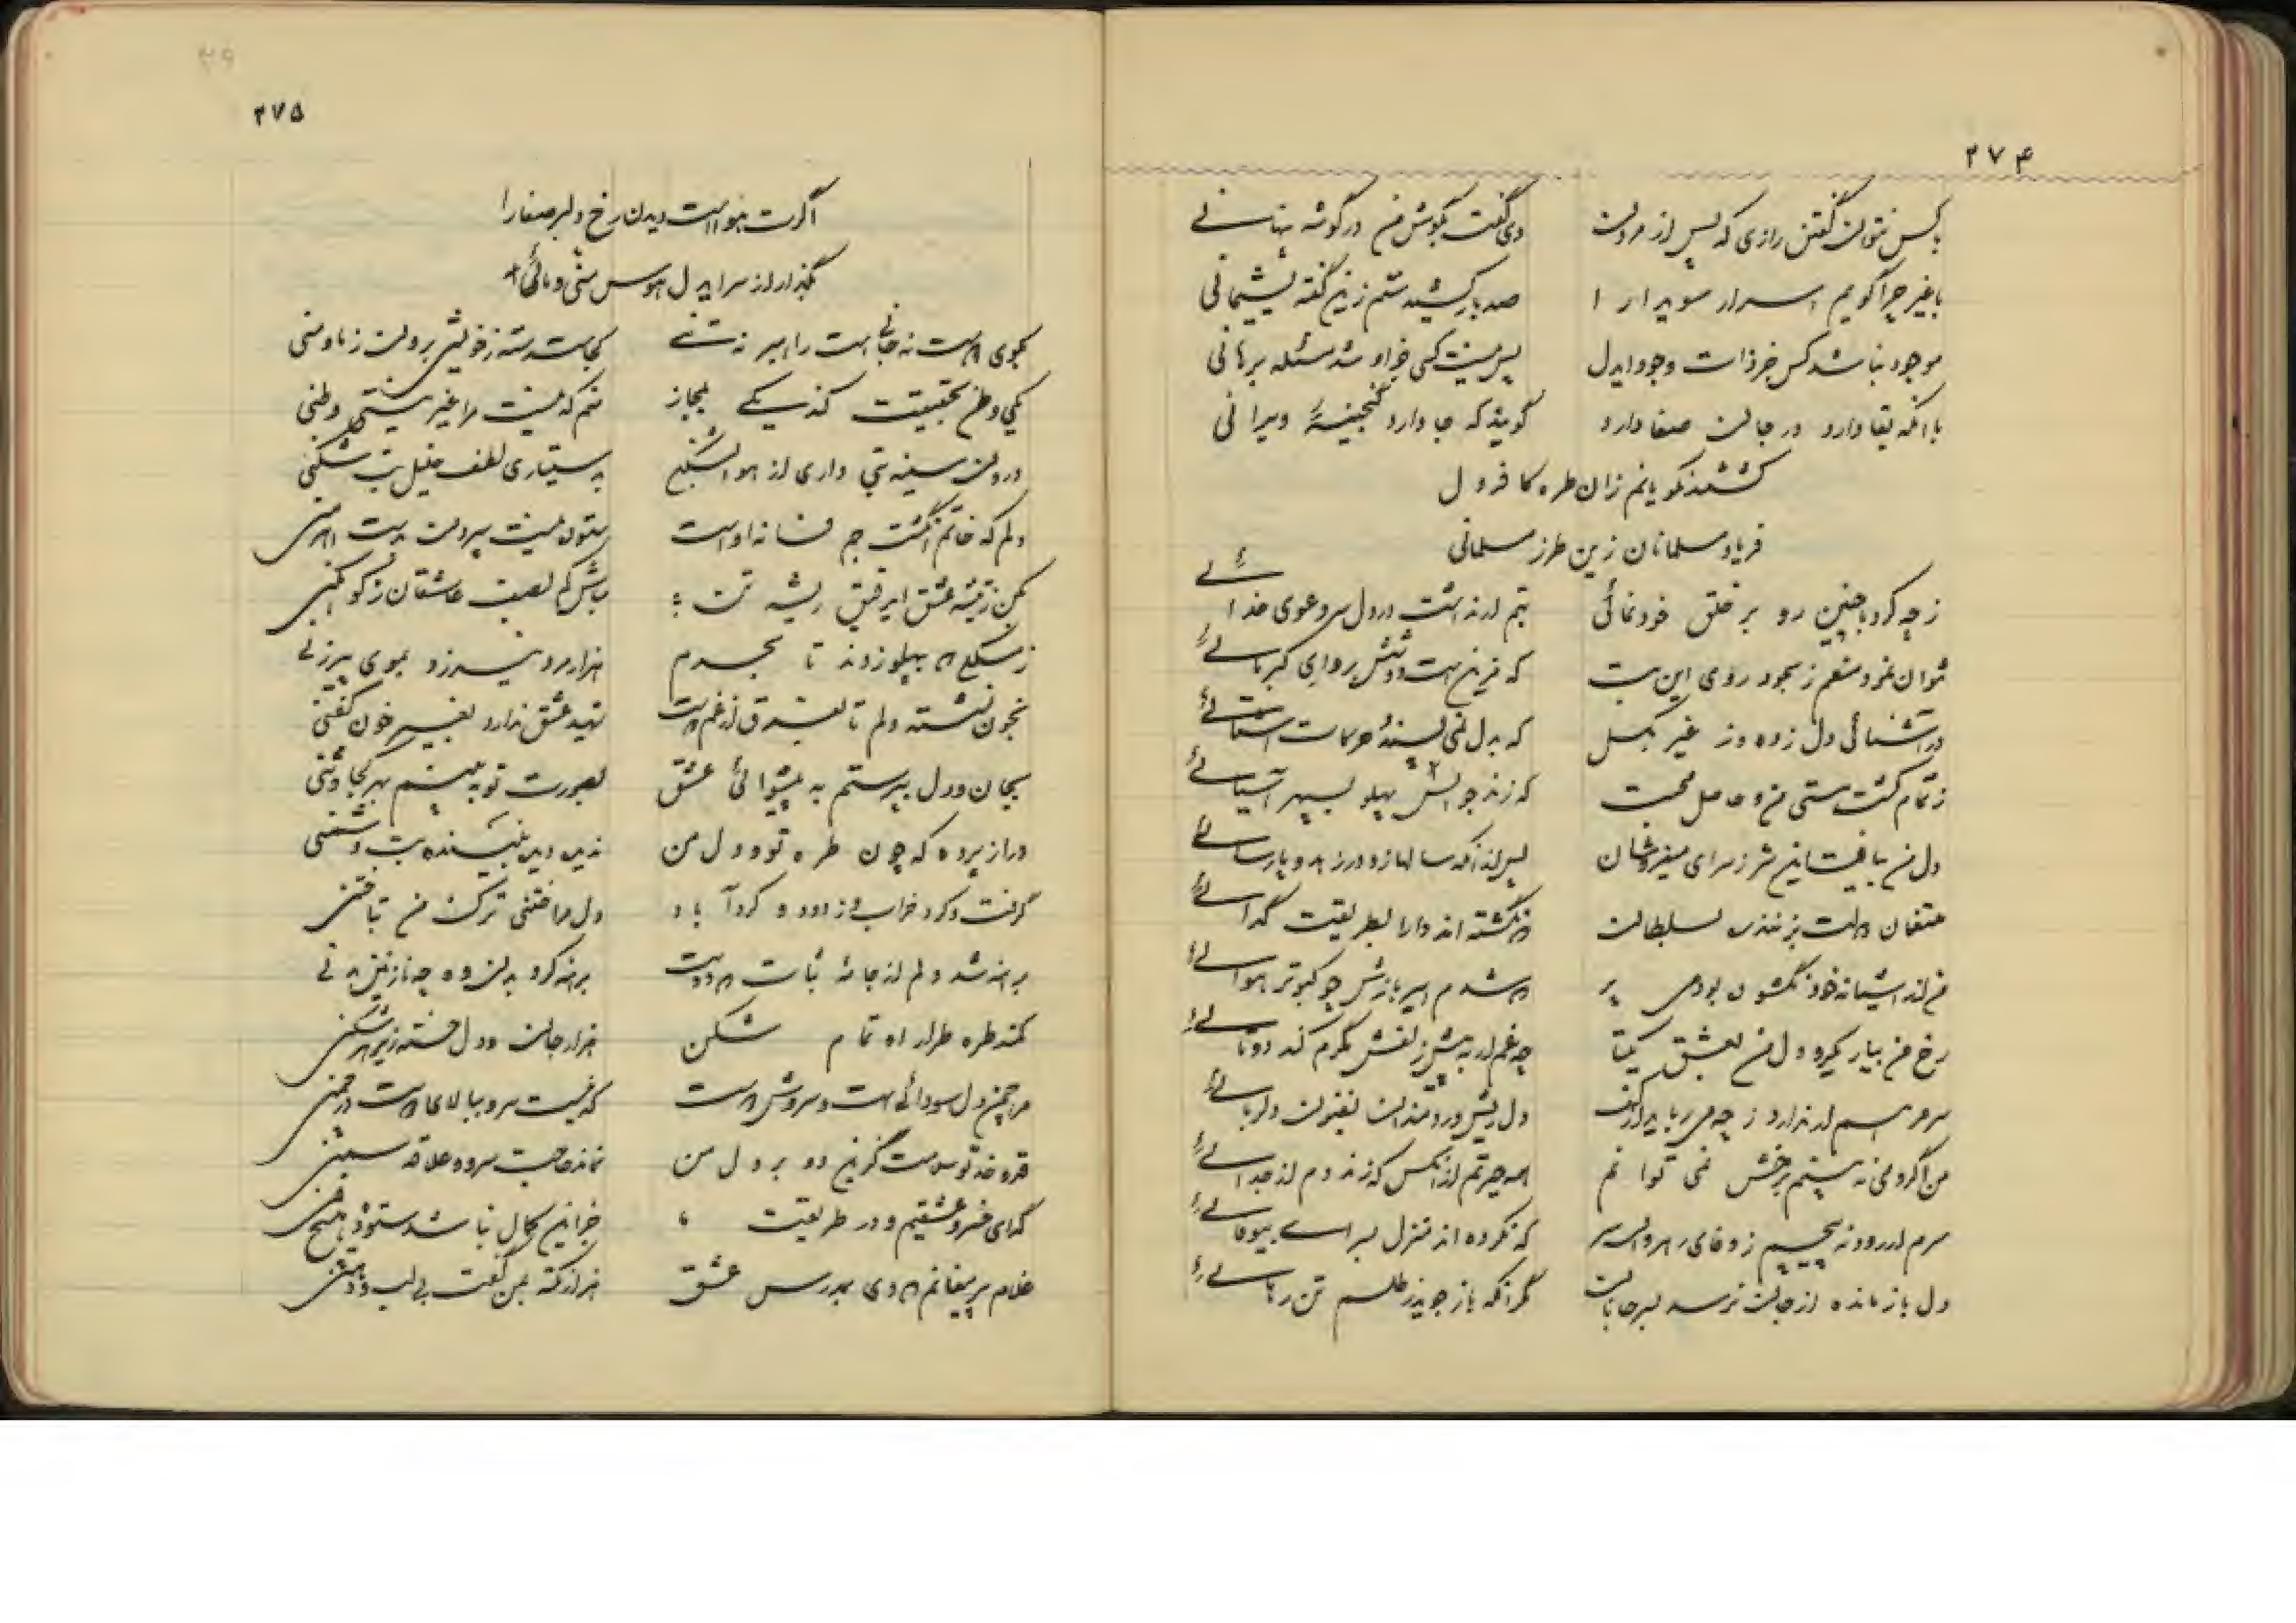 ۲۷۴
با کس نتوان گفتن رازی که پس از مردن دی گفت بگوش من در گوشه پنهانی
با غیر چرا گویم اسرار سویدا را صد بار کشیدستم زین گفته پشیمانی
موجود نباشد کس جز ذات وجود ایدل پس نیست کسی جز او شد مسئله برهانی
با آنکه بقا دارد در جان صفا دارد گویند که جا دارد گنجینهٔ ویرانی
کشتند نکویانم زان طره کافر دل
فریاد مسلمانان زین طرز مسلمانی
ز چه کرد با چنین رو بر خلق خودنمائی بتم ار نداشت در دل سر دعوی خدائی
نتوان نمود منعم ز سجود روی این بت که مزین است دوشش بردای کبریائی
در آشنائی دل زده و ز غیر بگسل که بدل نمی پسندد حرکات آشنائی
ز تمام کشت هستی من و حاصل محبت که زند جوانش پهلو بسپهر آسیائی
دل من نیافت این سر ز سرای میفروشان پس از آنکه سالها زد در زهد و پارسائی
متفقان همت بر مخزن سلطان که نگشته اند دارا بطریقت گدائی
من از آشیانه خود نگشودن بودم پر که شدم اسیر بازش چو کبوتر هوائی
رخ من بیار گیرد دل من بعشق یکتا چه غم ار به پیش زلفش کمرم کند دوتائی
سر مرهم ار ندارد ز چه میرباید از کف دل ریش دردمندان بفنون دلربائی
من اگر دمی نه بینم رخش نمی توانم همه حیرتم از آنکس که زند دم از جدائی
سرم ار رود نه پیچم ز وفای رهروان سر که نکرده اند منزل بسرای بیوفائی
دل باز مانده از جان نرسد بسر جانان مگر آنکه باز جوید ز طلسم تن رهائی
۲۷۵
اگرت هواست دیدن رخ دلبر صفا را
بگذار از سر ایدل هوس منی و مائی
بکوی است نه جانی است راهبر نه تنی کجاست رسته ز خویش برون ز ما و منی
یکی وطن بحقیقت کند یکی بمجاز منم که نیست مرا غیر نیستی وطنی
درون سینه بتی داری از هوا بشکن بدستیاری لطف خلیل بت شکنی
دلم که خاتم انگشت جم فسانه اوست ستون نیست سپردن بدست اهرمنی
بکن ز تیشه عشق ای رفیق ریشه تن مباش کم بصف عاشقان ز کوهکنی
ز سنگها که بپهلو زدند تا بحدم هزار مرد نیرزد بموی پیرزنی
بخون نشسته دلم تا بفرق از غم دوست شهید عشق ندارد بغیر خون کفنی
بجان و دل بپرستم به پیشوائی عشق بصورت تو به بینم بهر کجا وثنی
دراز پرده که چون طره تو و دل من ندید دیده بیننده بت و شمنی
گرفت و کرد خراب و زدود و کرد آباد دل مرا ختنی ترک من بتاختنی
برهنه شد دلم از جامهٔ ثبات که دوست برهنه کرد بدن وه چه نازنین بدنی
کمند طره طرار او تمام شکن هزار جان و دل خسته زیر هر شکنی
مرا چمن دل سودائی است و سروش دوست که نیست سرو ببالای دوست در چمنی
قد و خد تو بدوست گزین دو بر دل من نماند حاجت سرو و علاقه سمنی
گدای خسرو عشقیم و در طریقت ما جز این کمال نباشد ستوده هیچ فنی
غلام پیر مغانم که دی بدرس عشق هزار نکته بمن گفت بی لب و دهنی